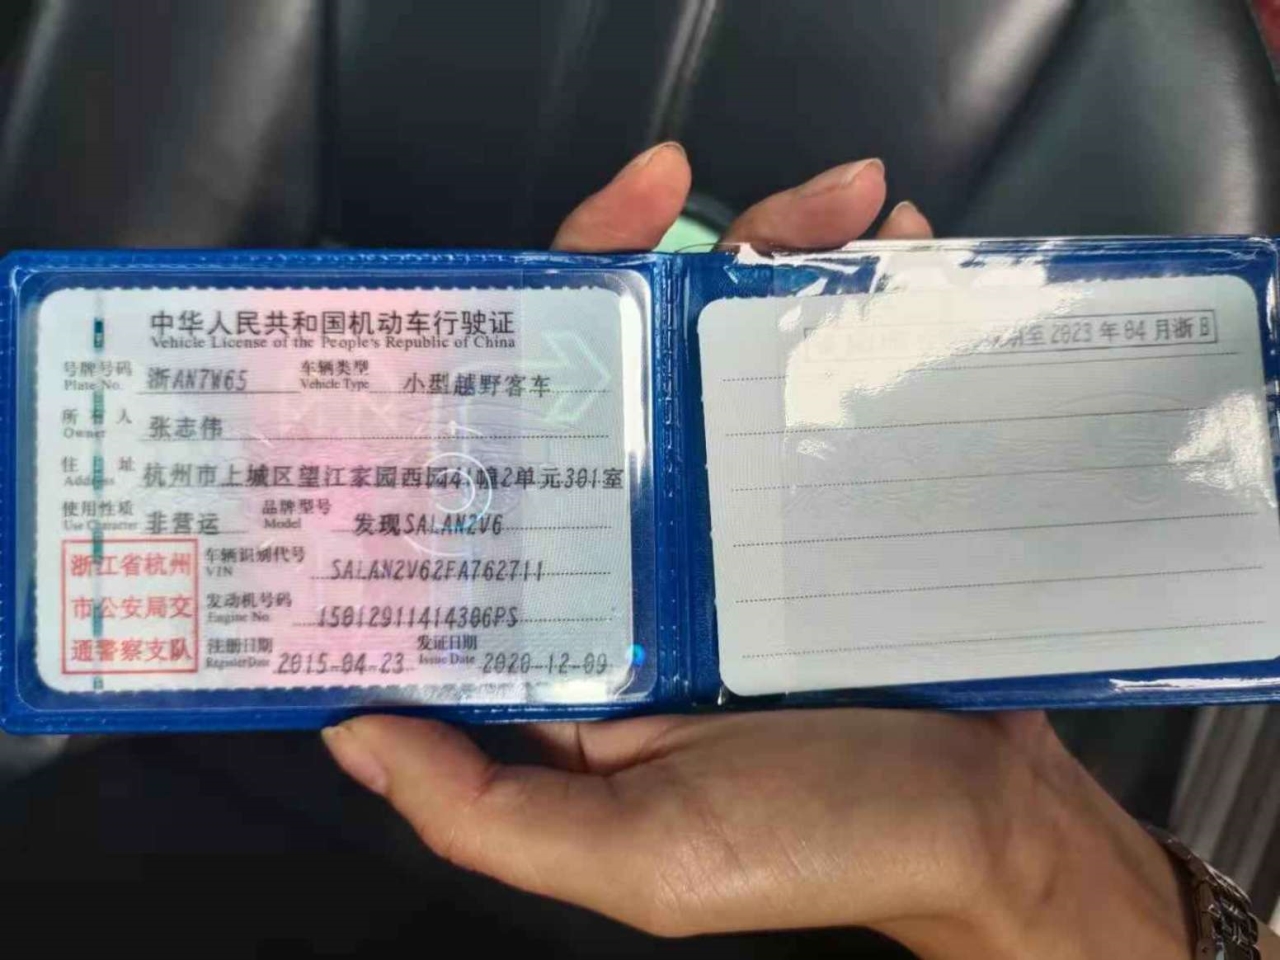 中华人民共和国机动车行驶证
Vehicle License of the People's Republic of China
号牌号码 浙AN7W65 车辆类型 小型越野客车
Plate No. Vehicle Type
所有人 张志伟
Owner
住址 杭州市上城区望江家园西园41幢2单元301室
Address
使用性质 非营运 品牌型号 发现SALAN2V6
Use Character Model
车辆识别代号 SALAN2V62FA762711
VIN
发动机号码 15012911414306PS
Engine No.
注册日期 2015-04-23 发证日期 2020-12-09
Register Date Issue Date
浙江省杭州
市公安局交
通警察支队
至2023年04月浙B